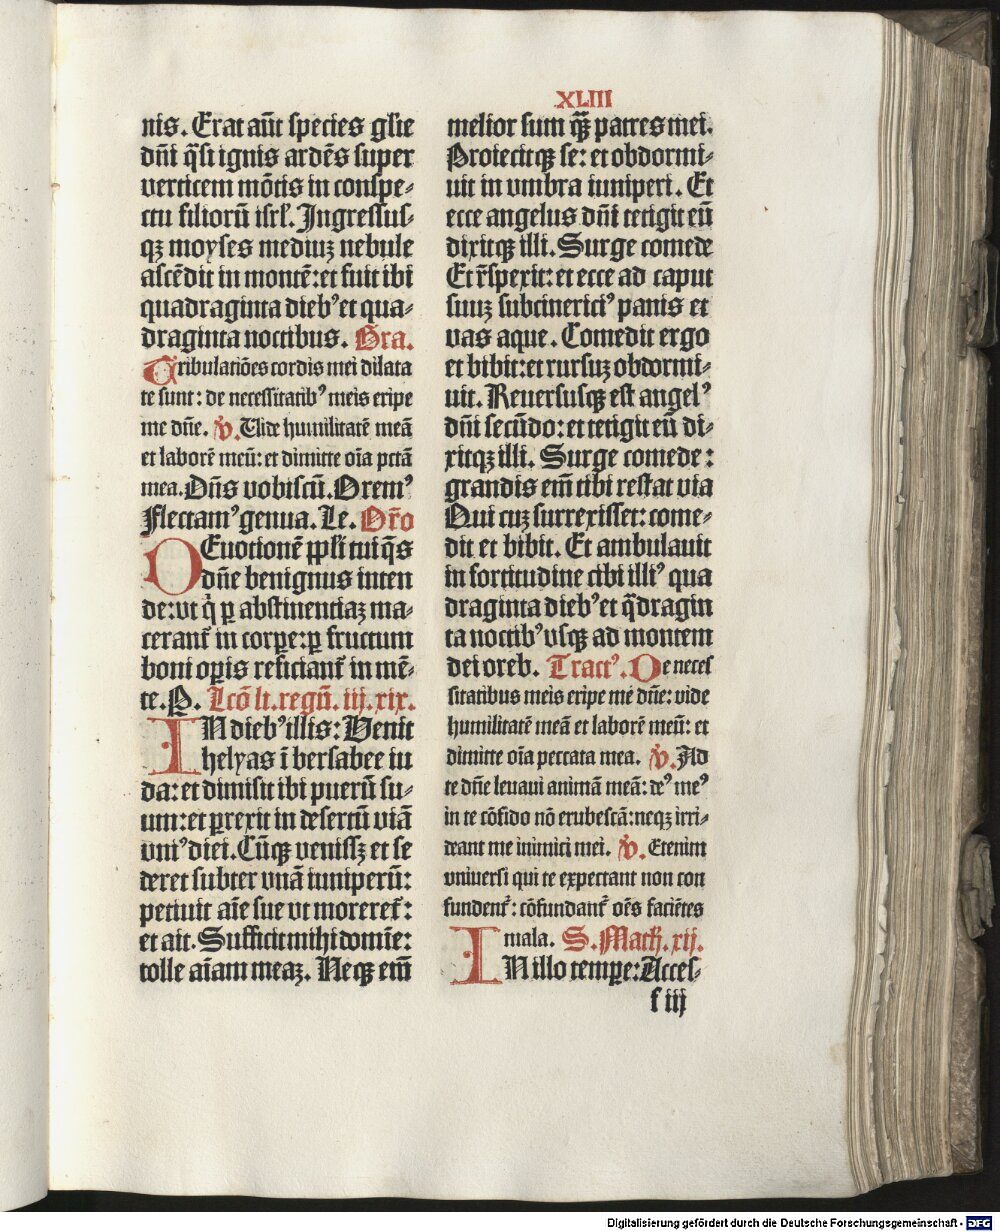 XLIII
nis. Erat aūt species glīe
dn̄i q̄si ignis ardēs super
verticem mōtis in conspe⸗
ctu filiorū isrl̓. Ingressus⸗
qꝫ moyses mediuꝫ nebule
ascēdit in montē: et fuit ibi
quadraginta dieb⁹ et qua⸗
draginta noctibus. Gra.
Tribulatiōes cordis mei dilata
te sunt: de necessitatib⁹ meis eripe
me dn̄e. v̓. Uide humilitatē meā
et laborē meū: et dimitte oīa pctā
mea. Dn̄s vobiscū. Orem⁹
Flectam⁹ genua. Le. Or̄o
DEuotionē ppl̓i tui q̄s
dn̄e benignus inten
de: vt q̇ ꝑ abstinentiaꝫ ma⸗
cerant̄ in corꝑe: ꝑ fructum
boni oꝑis reficiant̄ in mē⸗
te. P. Lcō li. regū. iij. xix.
IN dieb⁹ illis: Venit
helyas ī bersabee iu
da: et dimisit ibi puerū su⸗
um: et ꝑrexit in desertū viā
vni⁹ diei. Cūqꝫ venissꝫ et se
deret subter vnā iuniperū:
petiuit aīe sue vt moreret̄:
et ait. Sufficit mihi domīe:
tolle aīam meaꝫ. Neqꝫ em̄
melior sum q̄ꝫ patres mei.
Proiecitqꝫ se: et obdormi⸗
uit in vmbra iuniperi. Et
ecce angelus dn̄i tetigit eū
dixitqꝫ illi. Surge comede
Et r̄spexit: et ecce ad caput
suuꝫ subcinerici⁹ panis et
vas aque. Comedit ergo
et bibit: et rursuꝫ obdormi⸗
uit. Reuersusqꝫ est angel⁹
dn̄i secūdo: et tetigit eū di⸗
xitqꝫ illi. Surge comede:
grandis em̄ tibi restat via
Qui cuꝫ surrexisset: come⸗
dit et bibit. Et ambulauit
in fortitudine cibi illi⁹ qua
draginta dieb⁹ et q̄dragin
ta noctib⁹ vsqꝫ ad montem
dei oreb. Tract⁹. De neces
sitatibus meis eripe me dn̄e: vide
humilitatē meā et laborē meū: et
dimitte oīa peccata mea. v̓. Ad
te dn̄e leuaui animā meā: de⁹ me⁹
in te cōfido nō erubescā: neqꝫ irri⸗
deant me inimici mei. v̓. Etenim
vniuersi qui te expectant non con
fundent̄: cōfundant̄ oēs faciētes
mala. S. Math. xij.
IN illo temꝑe: Acces⸗
f iij
Digitalisierung gefördert durch die Deutsche Forschungsgemeinschaft - DFG